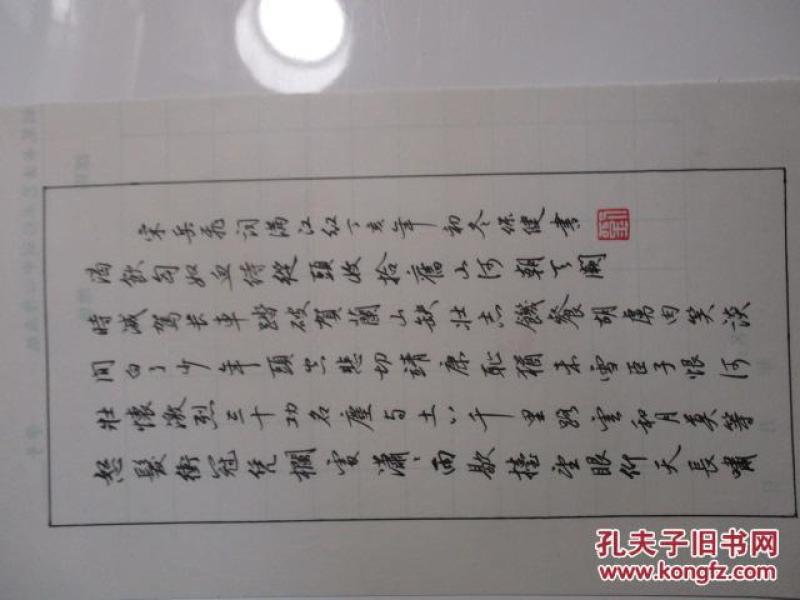 怒髮衝冠凭欄處瀟〻雨歇擡望眼仰天長嘯
壯懷激烈三十功名塵与土八千里路雲和月莫等
閒白了少年頭空悲切靖康恥猶未雪臣子恨何
時滅駕长車踏破賀蘭山缺壯志饑餐胡虜肉笑談
渴飲匈奴血待從頭收拾舊山河朝天闕
宋岳飛词滿江红丁亥年初冬保健書
孔夫子旧书网
www.kongfz.com